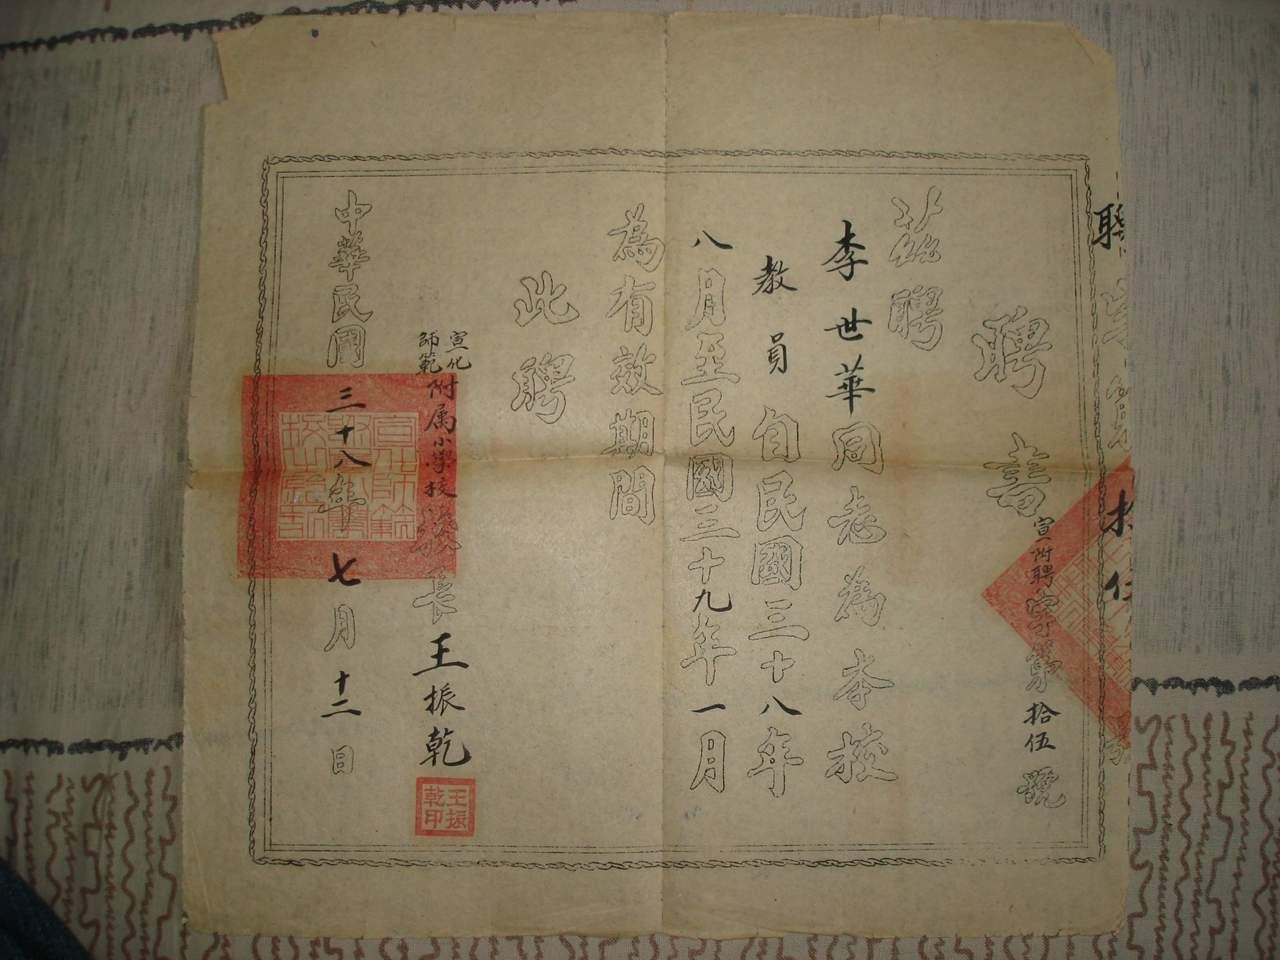 聘
字第
拾伍
號
聘書
宣附聘字第拾伍號
茲聘
李世華同志為本校
教員自民國三十八年
八月至民國三十九年一月
為有效期間
此聘
宣化
師範
附属小學校校長王振乾
王振
乾印
中華民國三十八年七月十二日